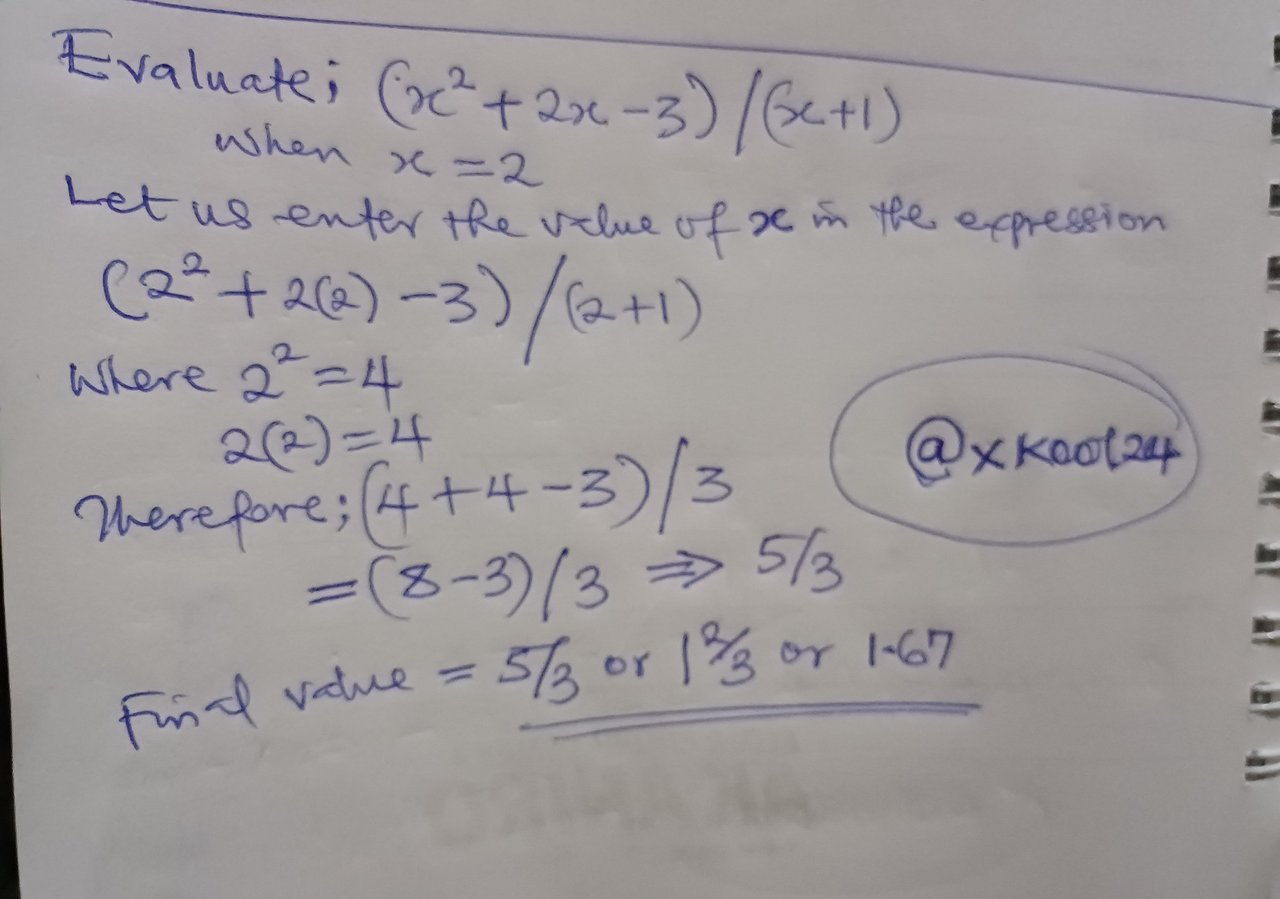 Evaluate; (x²+2x-3)/(x+1)
when x=2
Let us enter the value of x in the expression
(2²+2(2)-3)/(2+1)
Where 2²=4
2(2)=4
Therefore; (4+4-3)/3
=(8-3)/3 ⇒ 5/3
Final value = 5/3 or 1 2/3 or 1.67
@xkool24